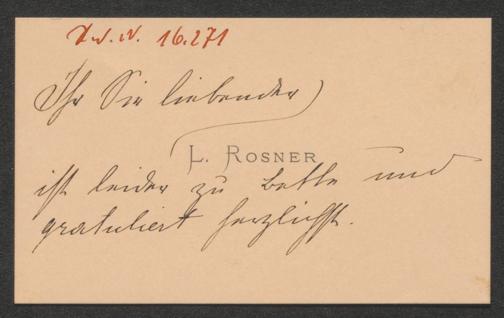 I. N. 16.271
Ihr Sie liebender
L. ROSNER
ist leider zu Bette und
gratuliert herzlichst.